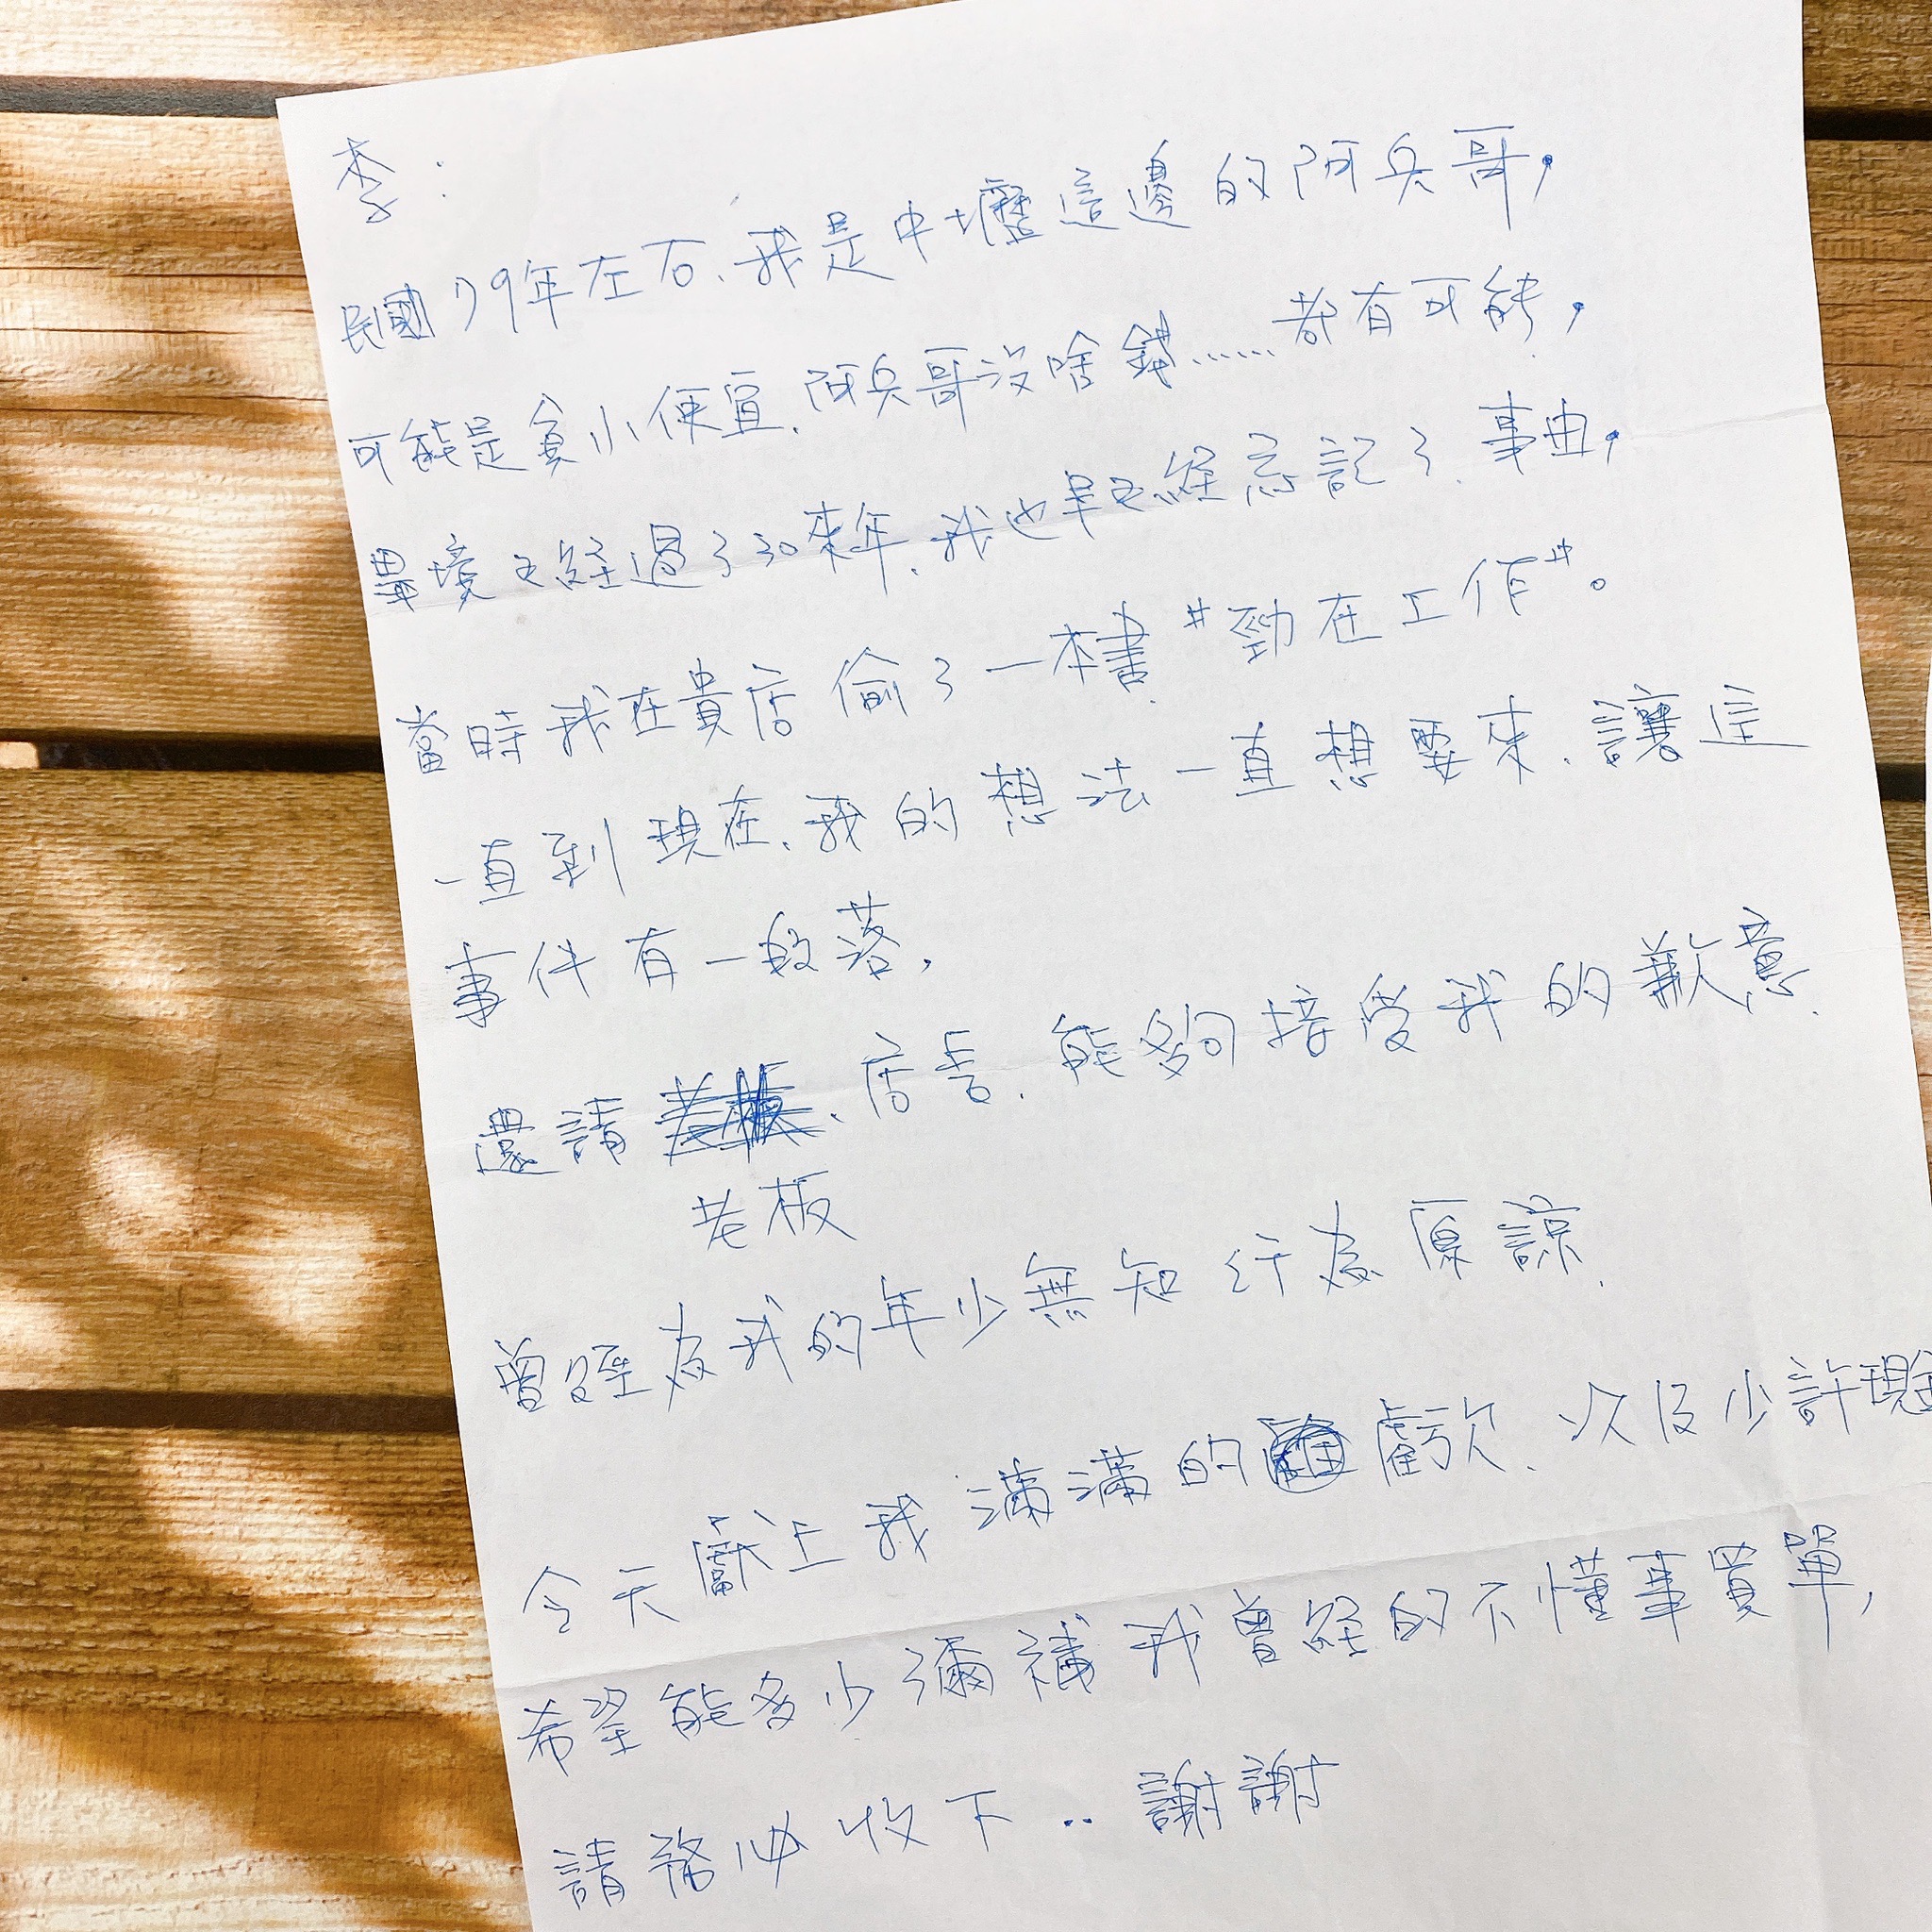 李：
民國79年左右、我是中壢這邊的阿兵哥，
可能是貪小便宜、阿兵哥沒啥錢……都有可能，
畢境已經過了30來年、我也早已經忘記了、事由，
當時我在貴店偷了一本書〝勁在工作〞。
一直到現在、我的想法一直想要來、讓這
事件有一段落，
還請、店長、能夠接受我的歉意、
老板
曾經為我的年少無知行為原諒、
今天獻上我滿滿的虧欠、以及少許現金
希望能多少彌補我曾經的不懂事買單，
請務必收下‥謝謝